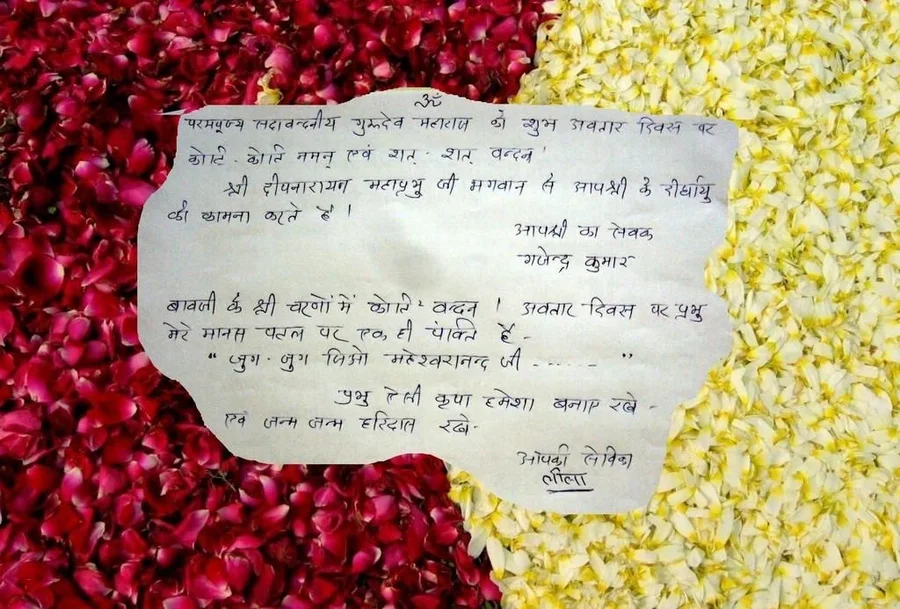 ॐ
परमपूज्य सदावन्दनीय गुरूदेव महाराज को शुभ अवतार दिवस पर
कोटि-कोटि नमन् एवं शत्-शत् वन्दन!
श्री दीपनारायण महाप्रभु जी भगवान से आपश्री के दीर्घायु
की कामना करते है।
आपश्री का सेवक
गजेन्द्र कुमार
बावजी के श्री चरणों में कोटि² वन्दन! अवतार दिवस पर प्रभु
मेरे मानस पटल पर एक ही पंक्ति है-
"जुग-जुग जिओ महेश्वरानन्द जी ------"
प्रभु ऐसी कृपा हमेशा बनाए रखे-
एवं जन्म जन्म हरिदास रखे-
आपकी सेविका
लीला